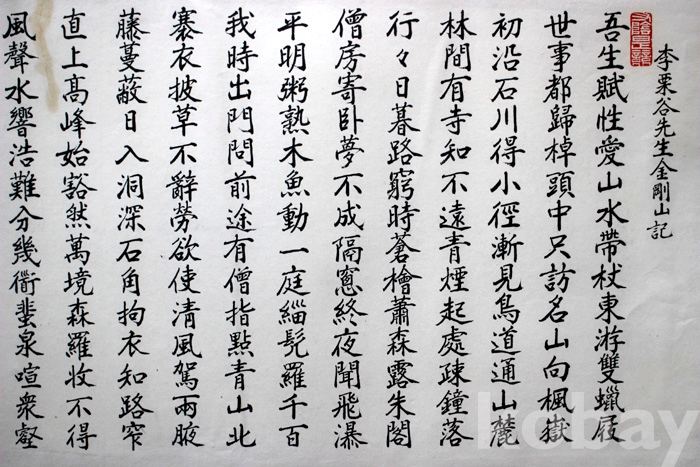 李栗谷先生金剛山記
吾生賦性愛山水帶杖東游雙蠟屐
世事都歸棹頭中只訪名山向楓嶽
初沿石川得小徑漸見鳥道通山麓
林間有寺知不遠青煙起處疎鐘落
行々日暮路窮時蒼檜蕭森露朱閣
僧房寄卧夢不成隔窓終夜聞飛瀑
平明粥熟木魚動一庭緇髡羅千百
我時出門問前途有僧指點青山北
褰衣披草不辭勞欲使清風駕兩腋
藤蔓蔽日入洞深石角拘衣知路窄
直上高峰始豁然萬境森羅收不得
風聲水響浩難分幾衢蜚泉喧衆壑
kobay